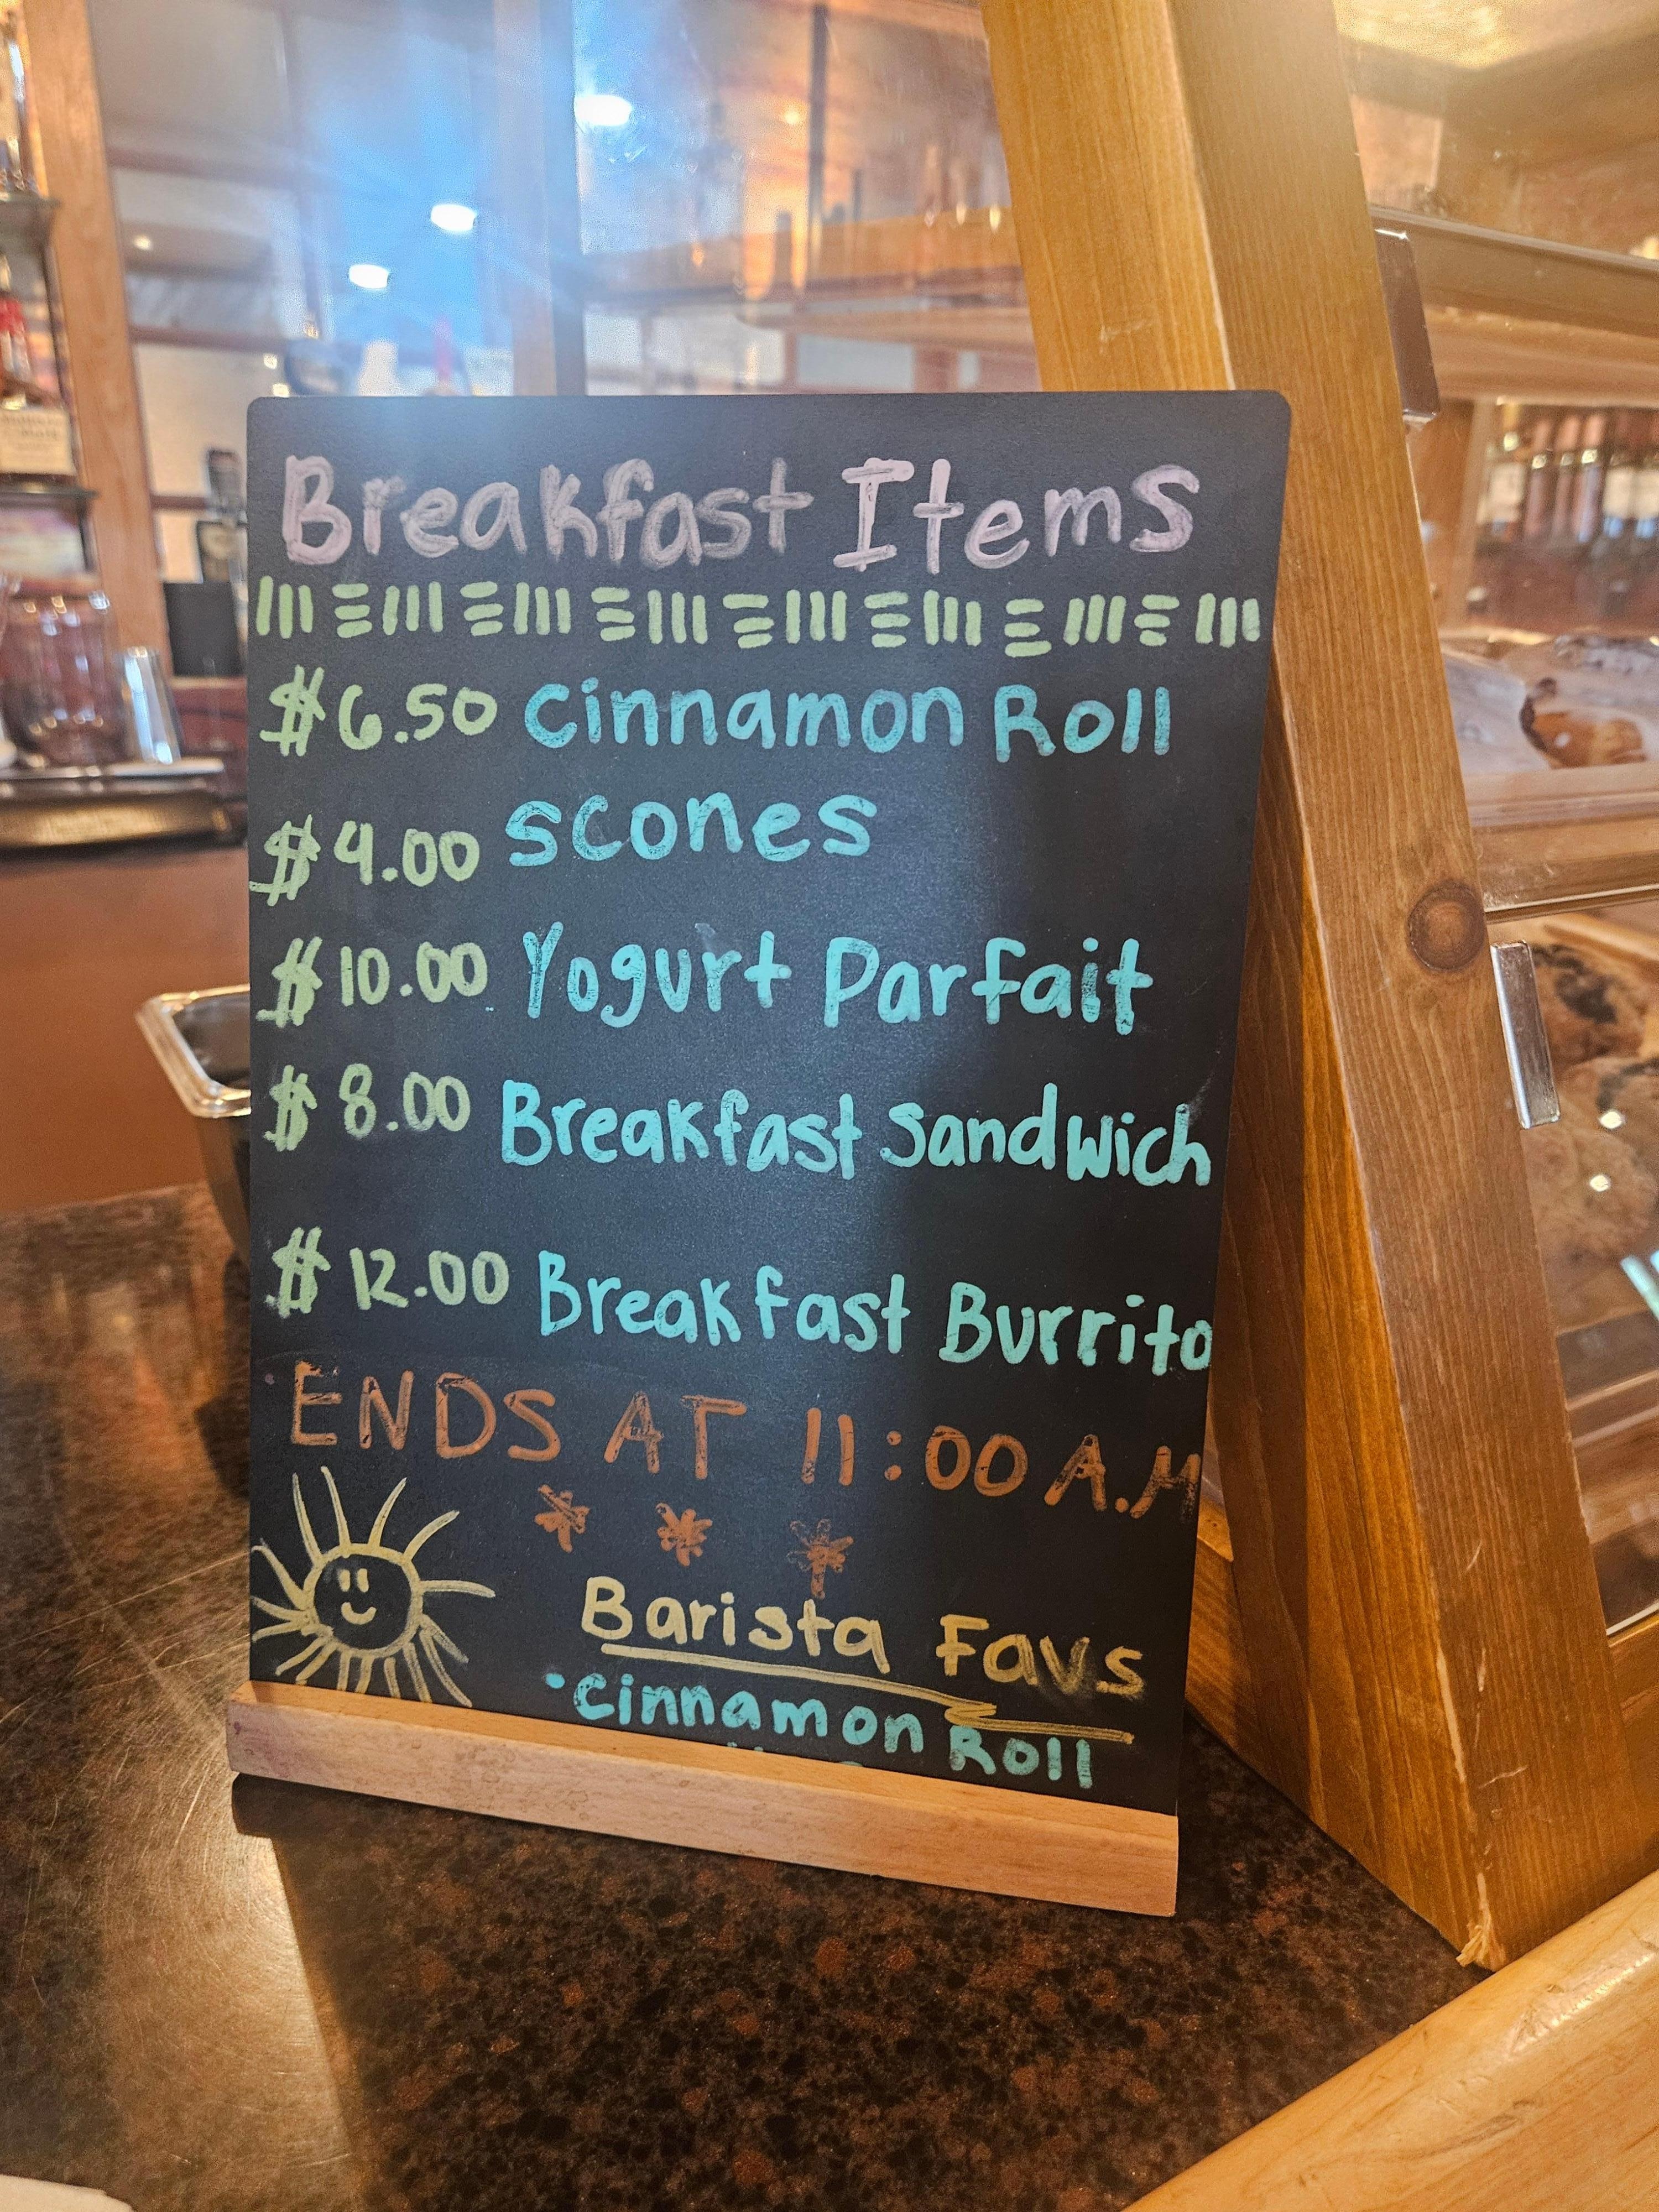 Breakfast Items
$6.50 Cinnamon Roll
$4.00 scones
$10.00 Yogurt Parfait
$8.00 Breakfast Sandwich
$12.00 Breakfast Burrito
ENDS AT 11:00 A.M
Barista Favs
·Cinnamon Roll